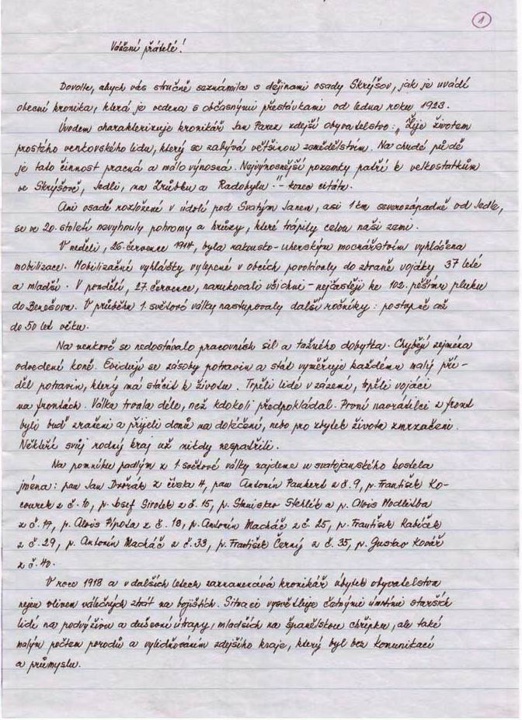 1
Vážení přátelé!
Dovolte, abych vás stručně seznámila s dějinami osady Skrýšov, jak je uvádí
obecní kronika, která je vedena s občasnými přestávkami od ledna roku 1923.
Úvodem charakterizuje kronikář Jan Parez zdejší obyvatelstvo: „Žije životem
prostého venkovského lidu, který se zabývá většinou zemědělstvím. Na chudé půdě
je tato činnost pracná a málo výnosná. Nejvýnosnější pozemky patří k velkostatkům
ve Skrýšově, Jedli, na Zrůbku a Radobylu." - konec citátu.
Ani osadě rozložené v údolí pod Svatým Janem, asi 1 km severozápadně od Jedle,
se ve 20. století nevyhnuly pohromy a hrůzy, které trápily celou naši zemi.
V neděli, 26. července 1914, byla rakousko-uherským mocnářstvím vyhlášena
mobilizace. Mobilizační vyhlášky vylepené v obcích povolávaly do zbraně vojáky 37 leté
a mladší. V pondělí, 27. července, narukovali všichni - nejčastěji ke 102. pěšímu pluku
do Benešova. V průběhu 1. světové války nastupovaly další ročníky: postupně až
do 50 let věku.
Na venkově se nedostávalo pracovních sil a tažného dobytka. Chybějí zejména
odvedení koně. Evidují se zásoby potravin a stát vyměřuje každému malý pří-
děl potravin, který má stačit k životu. Trpěli lidé v zázemí, trpěli vojáci
na frontách. Válka trvala déle, než kdokoli předpokládal. První navrátilci z front
byli buď zraněni a přijeli domů na doléčení, nebo pro zbytek života zmrzačeni.
Někteří svůj rodný kraj už nikdy nespatřili.
Na pomníku padlým z 1. světové války najdeme u svatojanského kostela
jména: pan Jan Dvořák z čísla 4, pan Antonín Paukert z č. 9, p. František Ko-
courek z č. 10, p. Josef Sirotek z č. 15, p. Stanislav Stehlík a p. Alois Modlitba
z č. 17, p. Alois z č. 18, p. Antonín Macháč z č. 25, p. František
z č. 29, p. Antonín Macháč z č. 33, p. František Černý z č. 35, p. Gustav Kovář
z č. 40.
V roce 1918 a v dalších letech zaznamenává kronikář úbytek obyvatelstva
nejen vlivem válečných ztrát na bojištích. Situaci vysvětluje častými úmrtími starších
lidí na podvýživu a duševní útrapy, mladších na španělskou chřipku, ale také
malým počtem porodů a vylidňováním zdejšího kraje, který byl bez komunikací
a průmyslu.